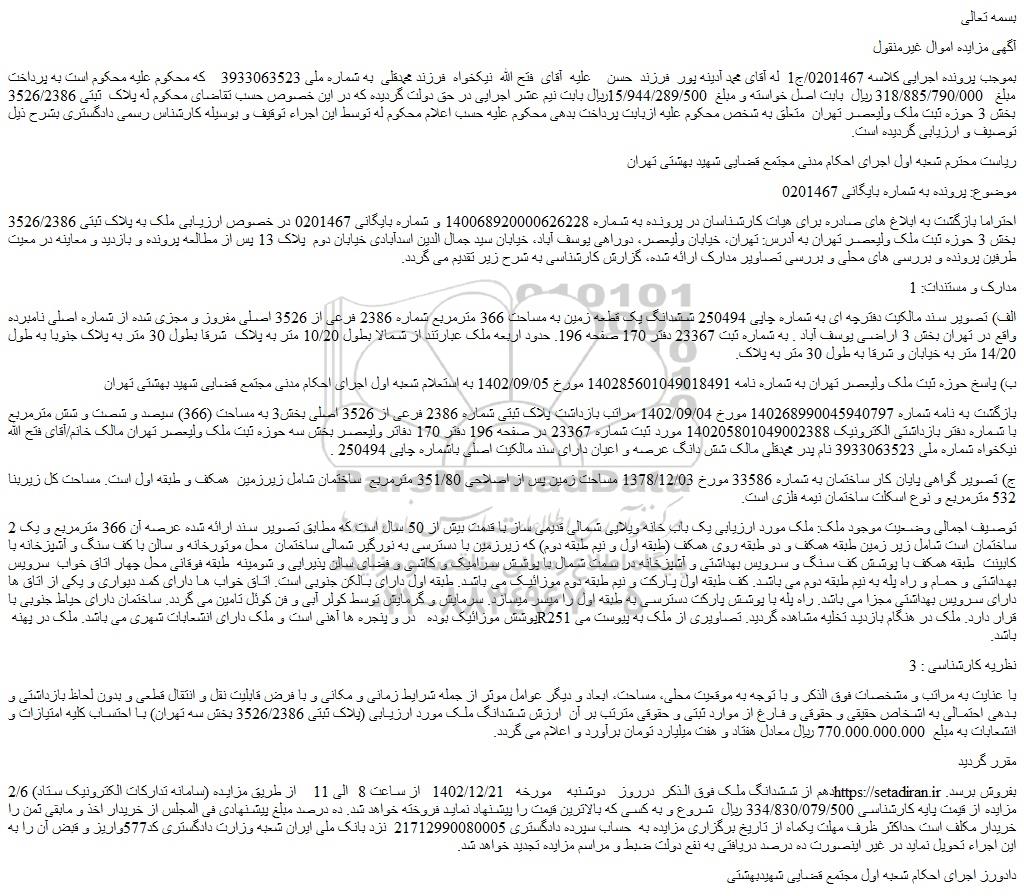 بسمه تعالی
آگهی مزایده اموال غیرمنقول
بموجب پرونده اجرایی کلاسه 0201467/ج1 له آقای محمد آدینه پور فرزند حسن علیه آقای فتح الله نیکخواه فرزند محمدقلی به شماره ملی 3933063523 که محکوم علیه محکوم است به پرداخت
مبلغ 318/885/790/000 ریال بابت اصل خواسته و مبلغ 15/944/289/500ریال بابت نیم عشر اجرایی در حق دولت گردیده که در این خصوص حسب تقاضای محکوم له پلاک ثبتی 3526/2386
بخش 3 حوزه ثبت ملک ولیعصر تهران متعلق به شخص محکوم علیه ازبابت پرداخت بدهی محکوم علیه حسب اعلام محکوم له توسط این اجراء توقیف و بوسیله کارشناس رسمی دادگستری بشرح ذیل
توصیف و ارزیابی گردیده است.
ریاست محترم شعبه اول اجرای احکام مدنی مجتمع قضایی شهید بهشتی تهران
موضوع: پرونده به شماره بایگانی 0201467
احتراما بازگشت به ابلاغ های صادره برای هیات کارشناسان در پرونده به شماره 140068920000626228 و شماره بایگانی 0201467 در خصوص ارزیابی ملک به پلاک ثبتی 3526/2386
بخش 3 حوزه ثبت ملک ولیعصر تهران به آدرس: تهران، خیابان ولیعصر، دوراهی یوسف آباد، خیابان سید جمال الدین اسدآبادی خیابان دوم پلاک 13 پس از مطالعه پرونده و بازدید و معاینه در معیت
طرفین پرونده و بررسی های محلی و بررسی تصاویر مدارک ارائه شده، گزارش کارشناسی به شرح زیر تقدیم می گردد.
مدارک و مستندات: 1
الف) تصویر سند مالکیت دفترچه ای به شماره چاپی 250494 ششدانگ یک قطعه زمین به مساحت 366 مترمربع شماره 2386 فرعی از 3526 اصلی مفروز و مجزی شده از شماره اصلی نامبرده
واقع در تهران بخش 3 اراضی یوسف آباد . به شماره ثبت 23367 دفتر 170 صفحه 196. حدود اربعه ملک عبارتند از شمالا بطول 10/20 متر به پلاک شرقا بطول 30 متر به پلاک جنوبا به طول
14/20 متر به خیابان و شرقا به طول 30 متر به پلاک.
ب) پاسخ حوزه ثبت ملک ولیعصر تهران به شماره نامه 140285601049018491 مورخ 1402/09/05 به استعلام شعبه اول اجرای احکام مدنی مجتمع قضایی شهید بهشتی تهران
بازگشت به نامه شماره 140268990045940797 مورخ 1402/09/04 مراتب بازداشت پلاک ثبتی شماره 2386 فرعی از 3526 اصلی بخش3 به مساحت (366) سیصد و شصت و شش مترمربع
با شماره دفتر بازداشتی الکترونیک 140205801049002388 مورد ثبت شماره 23367 در صفحه 196 دفتر 170 دفاتر ولیعصر بخش سه حوزه ثبت ملک ولیعصر تهران مالک خانم/آقای فتح الله
نیکخواه شماره ملی 3933063523 نام پدر محمدقلی مالک شش دانگ عرصه و اعیان دارای سند مالکیت اصلی باشماره چاپی 250494 .
ج) تصویر گواهی پایان کار ساختمان به شماره 33586 مورخ 1378/12/03 مساحت زمین پس از اصلاحی 351/80 مترمربع ساختمان شامل زیرزمین همکف و طبقه اول است. مساحت کل زیربنا
532 مترمربع و نوع اسکلت ساختمان نیمه فلزی است.
توصیف اجمالی وضعیت موجود ملک: ملک مورد ارزیابی یک باب خانه ویلایی شمالی قدیمی ساز با قدمت بیش از 50 سال است که مطابق تصویر سند ارائه شده عرصه آن 366 مترمربع و یک 2
ساختمان است شامل زیر زمین طبقه همکف و دو طبقه روی همکف (طبقه اول و نیم طبقه دوم) که زیرزمین با دسترسی به نورگیر شمالی ساختمان محل موتورخانه و سالن با کف سنگ و آشپزخانه با
کابینت طبقه همکف با پوشش کف سنگ و سرویس بهداشتی و آشپزخانه در سمت شمال با پوشش سرامیک و کاشی و فضای سالن پذیرایی و شومینه طبقه فوقانی محل چهار اتاق خواب سرویس
بهداشتی و حمام و راه پله به نیم طبقه دوم می باشد. کف طبقه اول پارکت و نیم طبقه دوم موزائیک می باشد. طبقه اول دارای بالکن جنوبی است. اتاق خواب ها دارای کمد دیواری و یکی از اتاق ها
دارای سرویس بهداشتی مجزا می باشد. راه پله با پوشش پارکت دسترسی به طبقه اول را میسر میسازد. سرمایش و گرمایش توسط کولر آبی و فن کوئل تامین می گردد. ساختمان دارای حیاط جنوبی با
قرار دارد. ملک در هنگام بازدید تخلیه مشاهده گردید. تصاویری از ملک به پیوست می R251پوشش موزائیک بوده در و پنجره ها آهنی است و ملک دارای انشعابات شهری می باشد. ملک در پهنه
باشد.
نظریه کارشناسی : 3
با عنایت به مراتب و مشخصات فوق الذکر و با توجه به موقعیت محلی، مساحت، ابعاد و دیگر عوامل موثر از جمله شرایط زمانی و مکانی و با فرض قابلیت نقل و انتقال قطعی و بدون لحاظ بازداشتی و
بدهی احتمالی به اشخاص حقیقی و حقوقی و فارغ از موارد ثبتی و حقوقی مترتب بر آن ارزش ششدانگ ملک مورد ارزیابی (پلاک ثبتی 3526/2386 بخش سه تهران) با احتساب کلیه امتیازات و
انشعابات به مبلغ 770.000.000.000 ریال معادل هفتاد و هفت میلیارد تومان برآورد و اعلام می گردد.
مقرر گردید
بفروش برسد. https://setadiran.irدهم از ششدانگ ملک فوق الذکر درروز دوشنبه مورخه 1402/12/21 از ساعت 8 الی 11 از طریق مزایده (سامانه تدارکات الکترونیک ستاد) 2/6
مزایده از قیمت پایه کارشناسی 334/830/079/500 ریال شروع و به کسی که بالاترین قیمت را پیشنهاد نماید فروخته خواهد شد. ده درصد مبلغ پیشنهادی فی المجلس از خریدار اخذ و مابقی ثمن را
خریدار مکلف است حداکثر ظرف مهلت یکماه از تاریخ برگزاری مزایده به حساب سپرده دادگستری 21712990080005 نزد بانک ملی ایران شعبه وزارت دادگستری کد577واریز و قبض آن را به
این اجراء تحویل نماید در غیر اینصورت ده درصد دریافتی به نفع دولت ضبط و مراسم مزایده تجدید خواهد شد.
دادورز اجرای احکام شعبه اول مجتمع قضایی شهیدبهشتی
ParsNamadData